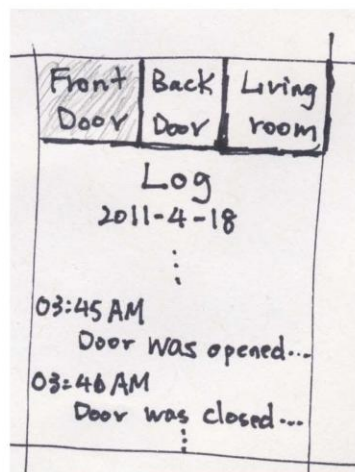 Front Door
Back Door
Living room
Log
2011-4-18
03:45 AM
Door was opened...
03:46 AM
Door was closed...